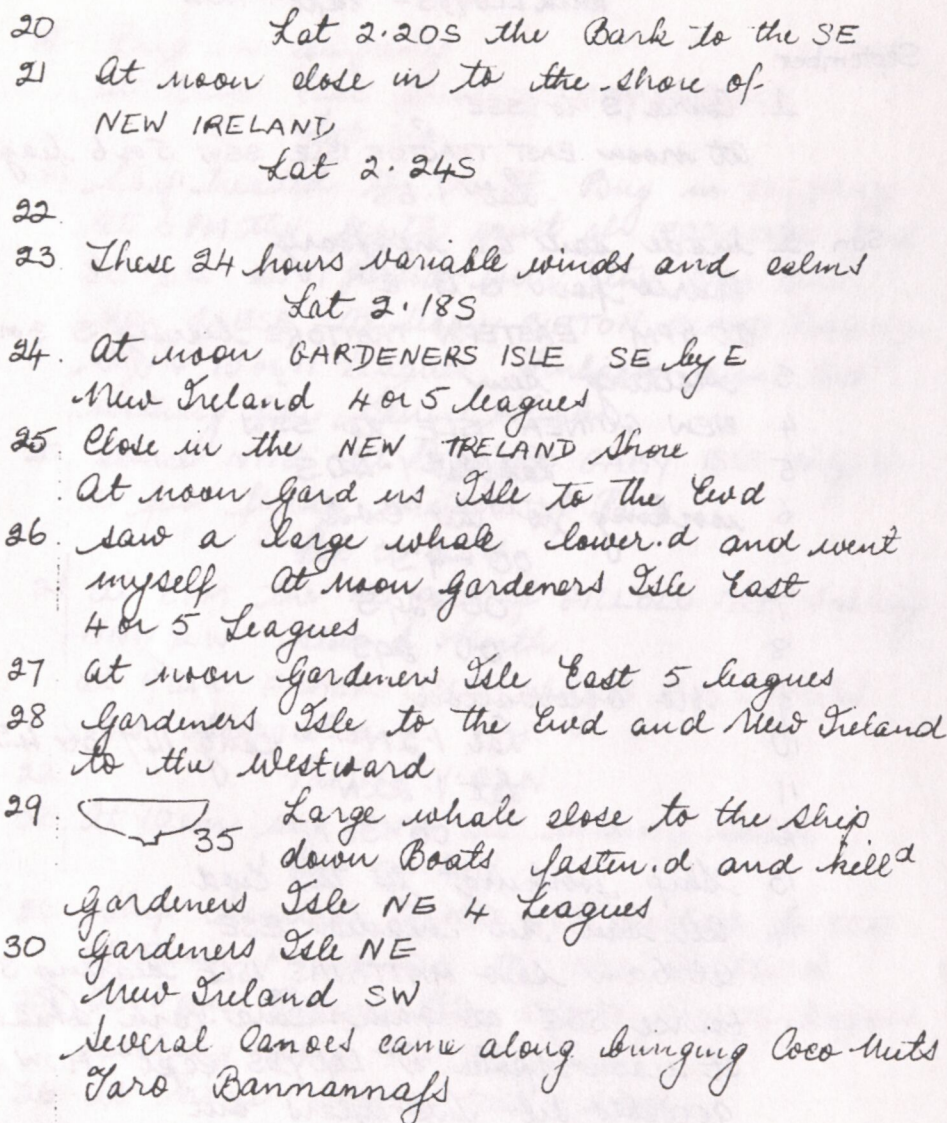 20 Lat 2.20S the Bark to the SE
21 At noon close in to the shore of
NEW IRELAND
Lat 2.24S
22.
23. These 24 hours variable winds and calms
Lat 2.18S
24. At noon GARDENERS ISLE SE by E
New Ireland 4 or 5 leagues
25. Close in the NEW IRELAND Shore
At noon Gard ns Isle to the Ewd
26. saw a large whale lower.d and went
myself At noon Gardeners Isle East
4 or 5 Leagues
27 At noon Gardeners Isle East 5 leagues
28 Gardeners Isle to the Ewd and New Ireland
to the Westward
29. 35 Large whale close to the ship
down Boats fasten.d and killd
Gardeners Isle NE 4 Leagues
30 Gardeners Isle NE
New Ireland SW
Several Canoes came along bringing Coco Nuts
Taro Bannannass